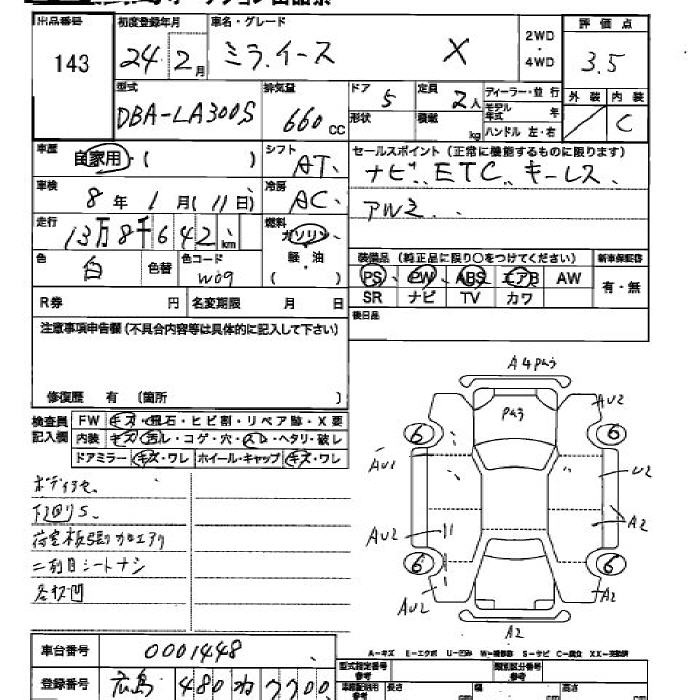 出品番号 初度登録年月 車名・グレード 2WD・4WD 評価点
143 24 2月 ミラ.イース X 3.5
型式 排気量 ドア 5 定員 2人 ディーラー・並行 外装 内装
DBA-LA300S 660cc 形状 積載 kg モデル年式 年 C
ハンドル 左・右
車歴 自家用・( ) シフト AT. セールスポイント(正常に機能するものに限ります)
ナビ、ETC、キーレス
車検 8年1月(11日) 冷房 AC. アルミ、
走行 13万8千642km 燃料 ガソリン・軽・油 ( )
色 白 色替 色コード W09 装備品(純正品に限り○をつけてください) 新車保証書
PS PW ABS エアB AW 有・無
R券 円 名変期限 月 日 SR ナビ TV カワ
注意事項申告欄(不具合内容等は具体的に記入して下さい) 後日品
修復歴 有 〔箇所 〕
検査員記入欄 FW キズ・飛石・ヒビ割・リペア跡・X要
内装 キズ・汚レ・コゲ・穴・スレ・ヘタリ・破レ
ドアミラー キズ・ワレ ホイール・キャップ キズ・ワレ
A4 Pあ3
Pあ3
AU2
6 6
AU1
U2
A2
AU2
6 6
AU2
A2
A2
下回りS.
二列目シートナシ
A-キズ E-エクボ U-凹み W-補修跡 S-サビ C-腐食 XX-交換済
車台番号 0001448
型式指定番号 参考 類別区分番号 参考
登録番号 広島 480 ね 7700
長さ 幅 高さ